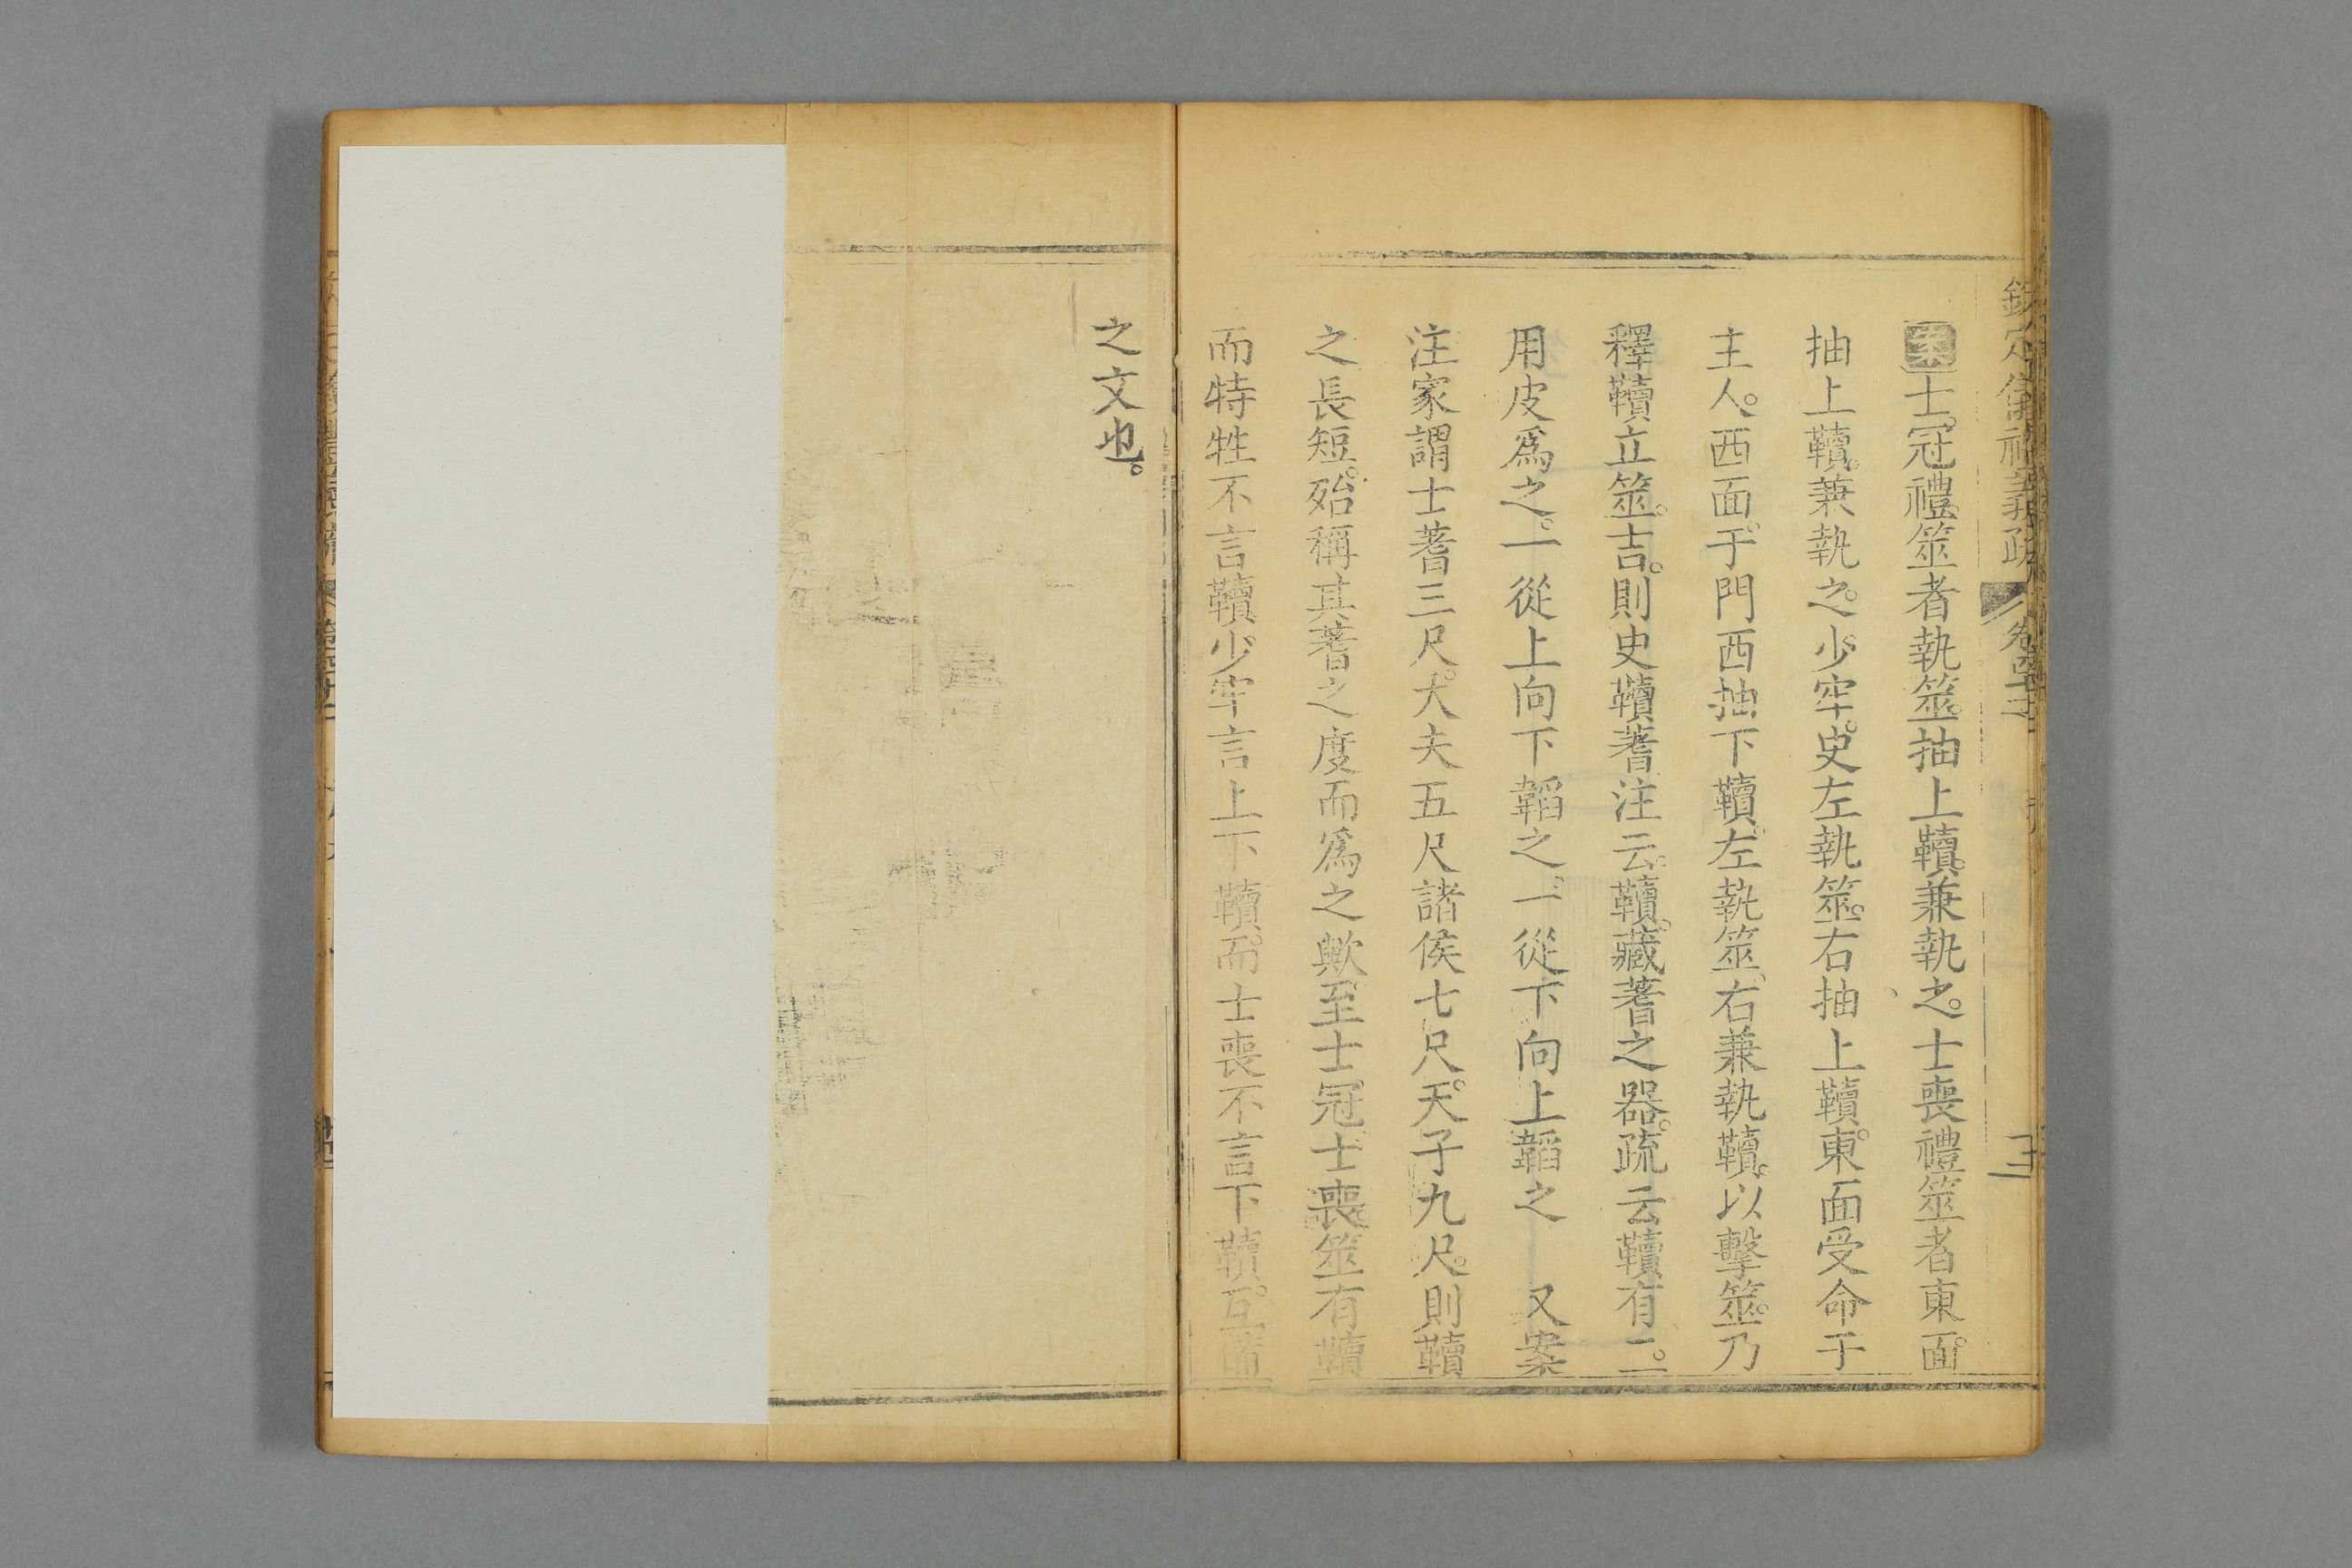 欽定儀禮義疏
案士冠禮筮者執筴抽上韇兼執之士喪禮筮者東面
抽上韇兼執之少牢史左執筮右抽上韇東面受命于
主人西面于門西抽下韇左執筮右兼執韇以擊筮乃
釋韇立筮吉則史韇蓍注云韇藏蓍之器疏云韇有二
用皮爲之一從上向下韜之一從下向上韜之　又案
注家謂士蓍三尺大夫五尺諸侯七尺天子九尺則韇
之長短殆稱其蓍之度而爲之歟至士冠士喪筮有韇
而特牲不言韇少牢言上下韇而士喪不言下韇互備
之文也